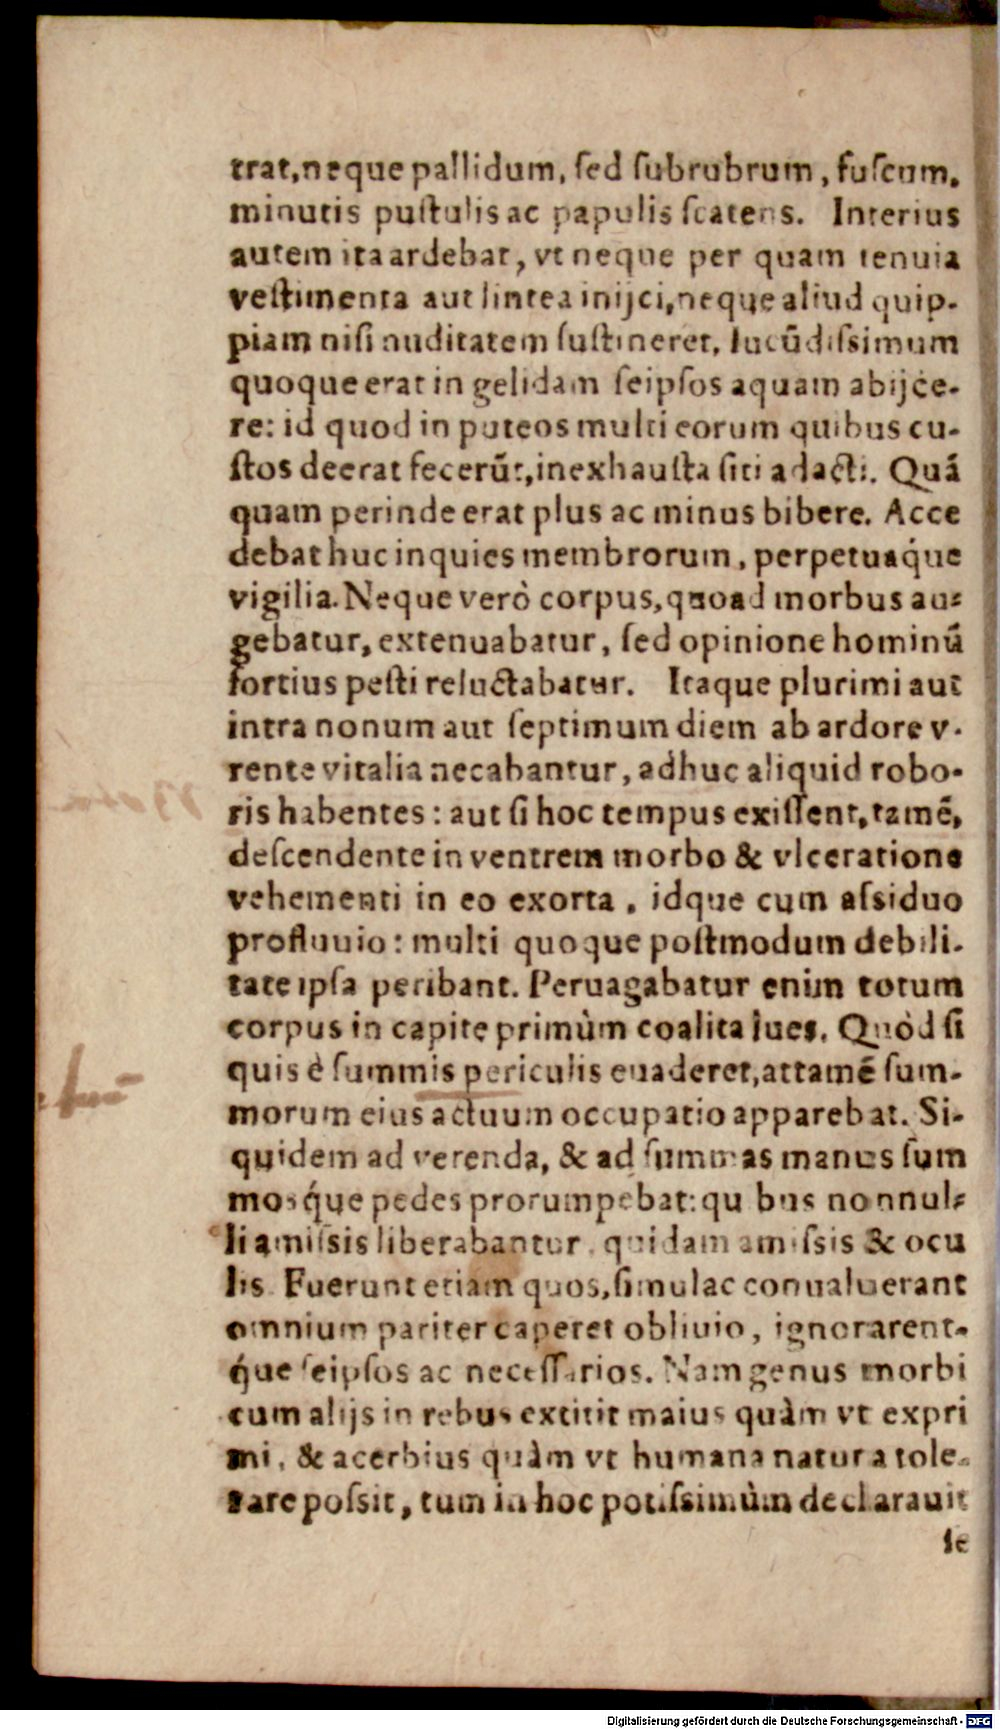 trat, neque pallidum, ſed ſubrubrum, fuſcum,
minutis puſtulis ac papulis ſcatens. Interius
autem ita ardebat, vt neque per quam tenuia
veſtimenta aut lintea inijci, neque aliud quip-
piam niſi nuditatem ſuſtineret, Iucũdiſsimum
quoque erat in gelidam ſeipſos aquam abijce-
re: id quod in puteos multi eorum quibus cu-
ſtos deerat fecerũt, inexhauſta ſiti adacti. Quã
quam perinde erat plus ac minus bibere. Acce
debat huc inquies membrorum, perpetuaq́ue
vigilia. Neque verò corpus, quoad morbus au-
gebatur, extenuabatur, ſed opinione hominũ
fortius peſti reluctabatur. Itaque plurimi aut
intra nonum aut ſeptimum diem ab ardore v-
rente vitalia necabantur, adhuc aliquid robo-
ris habentes: aut ſi hoc tempus exiſſent, tamẽ,
deſcendente in ventrem morbo & vlceratione
vehementi in eo exorta, idque cum aſsiduo
profluuio: multi quoque poſtmodum debili-
tate ipſa peribant. Peruagabatur enim totum
corpus in capite primùm coalita lues. Quòd ſi
quis è ſummis periculis euaderet, attamẽ ſum-
morum eius actuum occupatio apparebat. Si-
quidem ad verenda, & ad ſummas manus ſum
moſq́ue pedes prorumpebat: quibus nonnul-
li amiſsis liberabantur, quidam amiſsis & ocu
lis. Fuerunt etiam quos, ſimulac conualuerant
omnium pariter caperet obliuio, ignorarent-
q́ue ſeipſos ac neceſſarios. Nam genus morbi
cum alijs in rebus extitit maius quàm vt expri
mi, & acerbius quàm vt humana natura tole-
rare poſsit, tum in hoc potiſsimùm declarauit
ſe
Digitalisierung gefördert durch die Deutsche Forschungsgemeinschaft - DFG